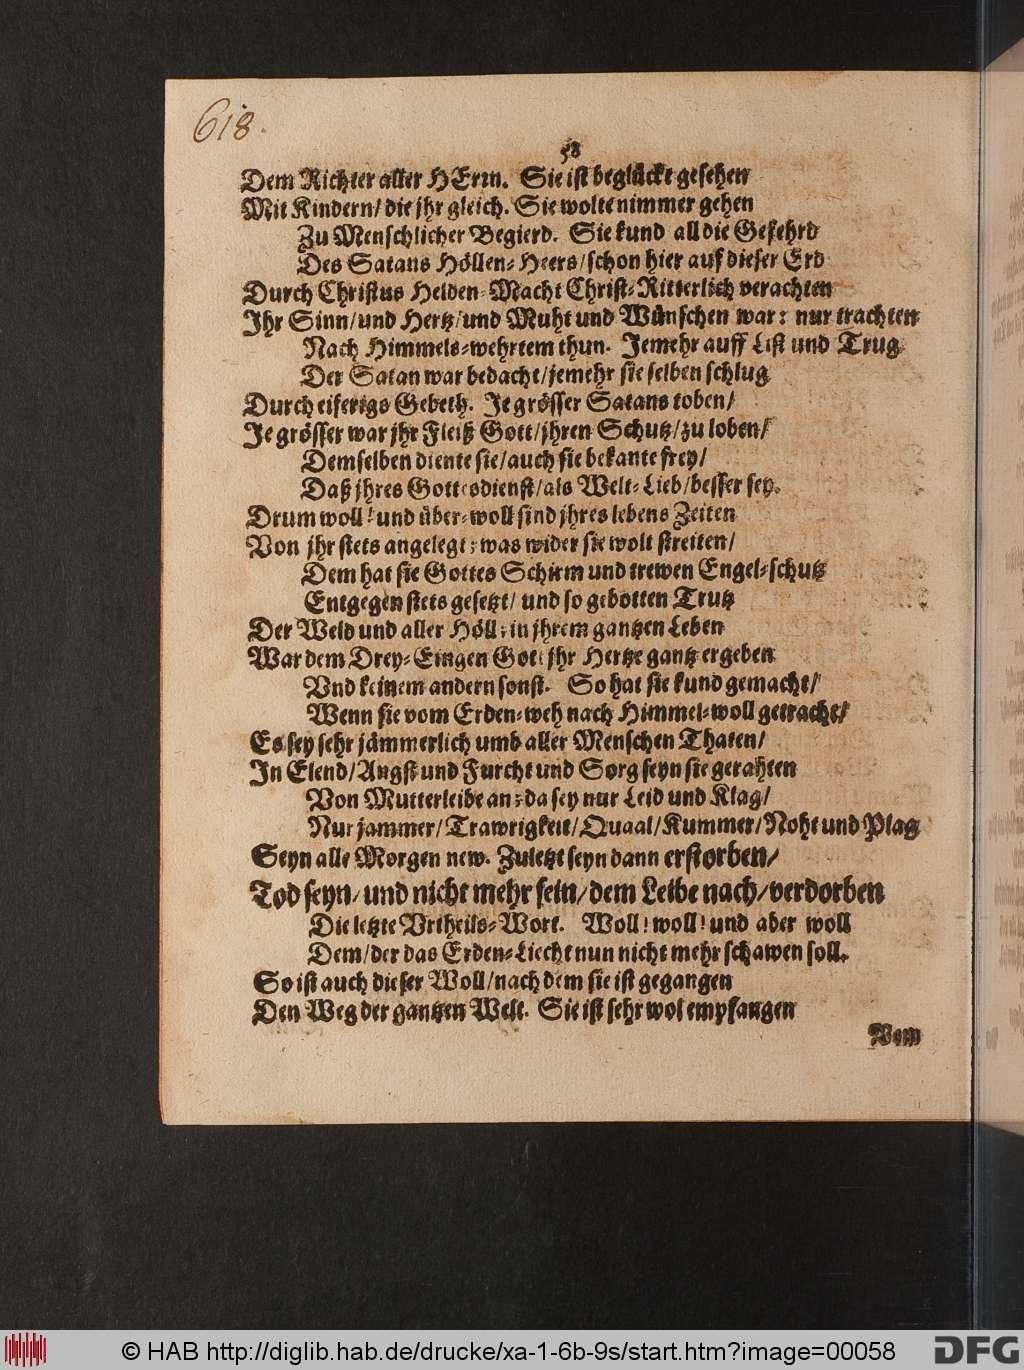 618.
58
Dem Richter aller HErrn. Sie ist beglückt gesehen
Mit Kindern/ die jhr gleich. Sie wolte nimmer gehen
Zu Menschlicher Begierd. Sie kund all die Gefehrd
Des Satans Höllen-Heers/ schon hier auf dieser Erd
Durch Christus Helden-Macht Christ-Ritterlich verachten
Ihr Sinn/ und Hertz/ und Muht und Wünschen war: nur trachten
Nach Himmels-wehrtem thun. Jemehr auff List und Trug
Der Satan war bedacht/ jemehr sie selben schlug
Durch eiferigs Gebeth. Je grösser Satans toben/
Je grösser war jhr Fleiß Gott/ jhren Schutz/ zu loben/
Demselben diente sie/ auch sie bekante frey/
Daß jhres Gottesdienst/ als Welt-Lieb/ besser sey.
Drum woll! und über-woll sind jhres lebens Zeiten
Von jhr stets angelegt; was wider sie wolt streiten/
Dem hat sie Gottes Schirm und trewen Engel-schutz
Entgegen stets gesetzt/ und so gebotten Trutz
Der Weld und aller Höll; in jhrem gantzen Leben
War dem Drey-Eingen Gott jhr Hertze gantz ergeben
Vnd keinem andern sonst. So hat sie kund gemacht/
Wenn sie vom Erden-weh nach Himmel-woll getracht/
Es sey sehr jämmerlich umb aller Menschen Thaten/
In Elend/ Angst und Furcht und Sorg seyn sie gerahten
Von Mutterleibe an; da sey nur Leid und Klag/
Nur jammer/ Trawrigkeit/ Quaal/ Kummer/ Noht und Plag
Seyn alle Morgen new. Zuletzt seyn dann erstorben/
Tod seyn/ und nicht mehr sein/ dem Leibe nach/ verdorben
Die letzte Vrtheils-Wort. Woll! woll! und aber woll
Dem/ der das Erden-Liecht nun nicht mehr schawen soll.
So ist auch dieser Woll/ nach dem sie ist gegangen
Den Weg der gantzen Welt. Sie ist sehr wol empfangen
Vom
© HAB http://diglib.hab.de/drucke/xa-1-6b-9s/start.htm?image=00058
DFG